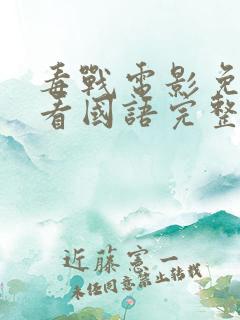 毒戰電影免
看國語完整
近藤憲一
未任同意禁止转载